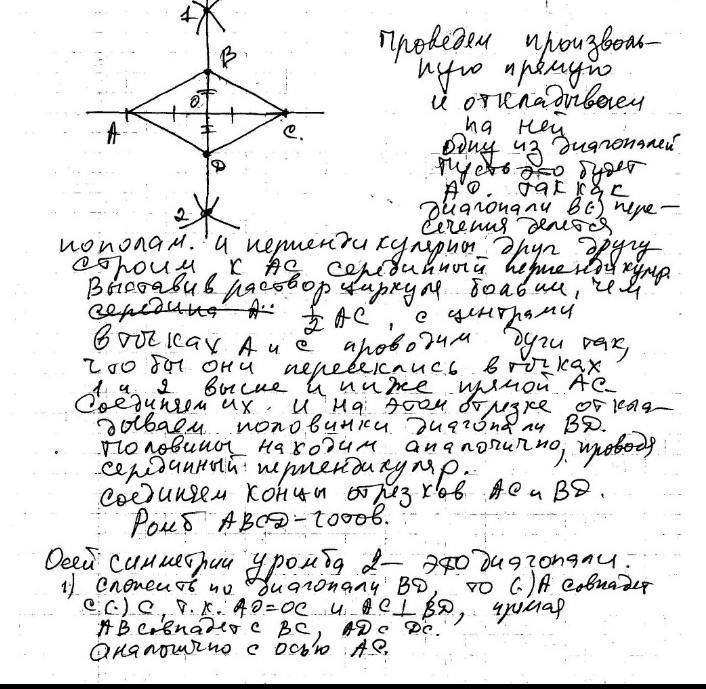 1
B
O
A
C.
D
2
Проведем произволь-
ную прямую
и откладываем
на ней
одну из диагоналей
Пусть это будет
AO. так как
диагонали в (·) пере-
сечения делется
пополам. и перпендикулярны друг другу
строим к AC серединный перпендикуляр.
Выставив раствор циркуля больши, чем
середина A.. 1/2 AC, с центрами
в точках A и C проводим дуги так,
что бы они пересеклись в точках
1 и 2 выше и ниже прямой AC.
Соединяем их. и на этом отрезке откла-
дываем половинки диагонали BD.
Половины находим аналогично, проводя
серединный перпендикуляр.
Соединяем концы отрезков AC и BD.
Ромб ABCD-готов.
Осей симметрии у ромба 2- это диагонали.
1) сложить по диагонали BD, то (·) A совпадет
с (·) C, т.к. AO=OC и AC⊥BD, прямая
AB совпадет с BC, AD с DC.
Аналогично с осью AC.